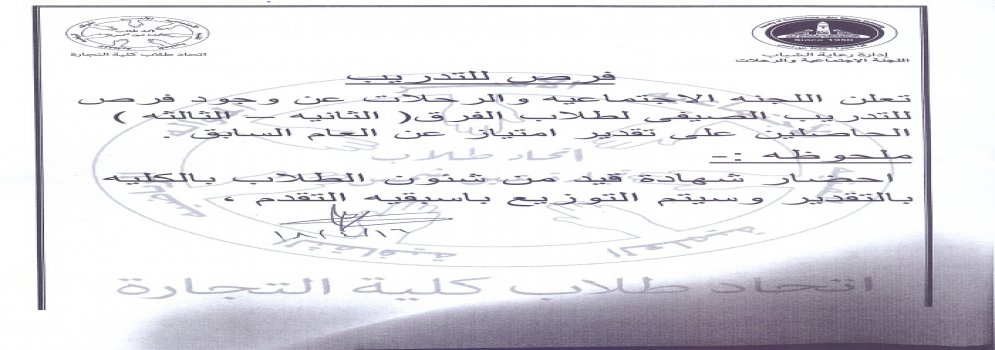 Since 1950
إدارة رعاية الشباب
اللجنة الاجتماعية والرحلات
اتحاد طلاب كلية التجارة
فرص للتدريب
تعلن اللجنه الاجتماعيه والرحلات عن وجود فرص
للتدريب الصيفى لطلاب الفرق ( الثانيه – الثالثه )
الحاصلين على تقدير امتياز عن العام السابق .
ملحوظه :-
احضار شهادة قيد من شئون الطلاب بالكليه
بالتقدير وسيتم التوزيع باسبقيه التقدم ،
اتحاد طلاب
العلمية
الثقافية
اتحاد طلاب كلية التجارة